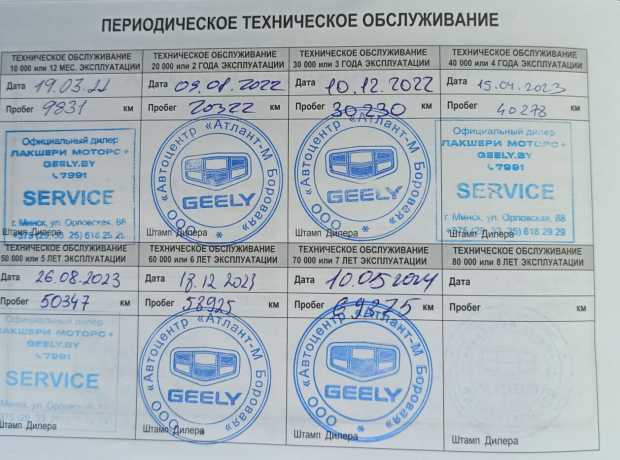 ПЕРИОДИЧЕСКОЕ ТЕХНИЧЕСКОЕ ОБСЛУЖИВАНИЕ
ТЕХНИЧЕСКОЕ ОБСЛУЖИВАНИЕ
10 000 или 12 МЕС. ЭКСПЛУАТАЦИИ
Дата 19.03.22
Пробег 9831 км
Официальный дилер
ЛАКШЕРИ МОТОРС+
GEELY.BY
7991
SERVICE
г. Минск, ул. Орловская, 88
+375 (29, 33, 25) 618 29 29
Штамп Дилера
ТЕХНИЧЕСКОЕ ОБСЛУЖИВАНИЕ
20 000 или 2 ГОДА ЭКСПЛУАТАЦИИ
Дата 09.08.2022
Пробег 20322 км
ООО «Автоцентр «Атлант-М Боровая»
GEELY
Штамп Дилера
ТЕХНИЧЕСКОЕ ОБСЛУЖИВАНИЕ
30 000 или 3 ГОДА ЭКСПЛУАТАЦИИ
Дата 10.12.2022
Пробег 30230 км
ООО «Автоцентр «Атлант-М Боровая»
GEELY
Штамп Дилера
ТЕХНИЧЕСКОЕ ОБСЛУЖИВАНИЕ
40 000 или 4 ГОДА ЭКСПЛУАТАЦИИ
Дата 15.04.2023
Пробег 40278 км
Официальный дилер
ЛАКШЕРИ МОТОРС+
GEELY.BY
7991
SERVICE
г. Минск, ул. Орловская, 88
+375 (29, 33, 25) 618 29 29
Штамп Дилера
ТЕХНИЧЕСКОЕ ОБСЛУЖИВАНИЕ
50 000 или 5 ЛЕТ ЭКСПЛУАТАЦИИ
Дата 26.08.2023
Пробег 50347 км
Официальный дилер
ЛАКШЕРИ МОТОРС+
GEELY.BY
7991
SERVICE
г. Минск, ул.
Штамп Дилера
ТЕХНИЧЕСКОЕ ОБСЛУЖИВАНИЕ
60 000 или 6 ЛЕТ ЭКСПЛУАТАЦИИ
Дата 18.12 2023
Пробег 58925 км
ООО «Автоцентр «Атлант-М Боровая»
GEELY
Штамп Дилера
ТЕХНИЧЕСКОЕ ОБСЛУЖИВАНИЕ
70 000 или 7 ЛЕТ ЭКСПЛУАТАЦИИ
Дата 10.05.2024
Пробег км
ООО «Автоцентр «Атлант-М Боровая»
GEELY
Штамп Дилера
ТЕХНИЧЕСКОЕ ОБСЛУЖИВАНИЕ
80 000 или 8 ЛЕТ ЭКСПЛУАТАЦИИ
Дата
Пробег км
Штамп Дилера